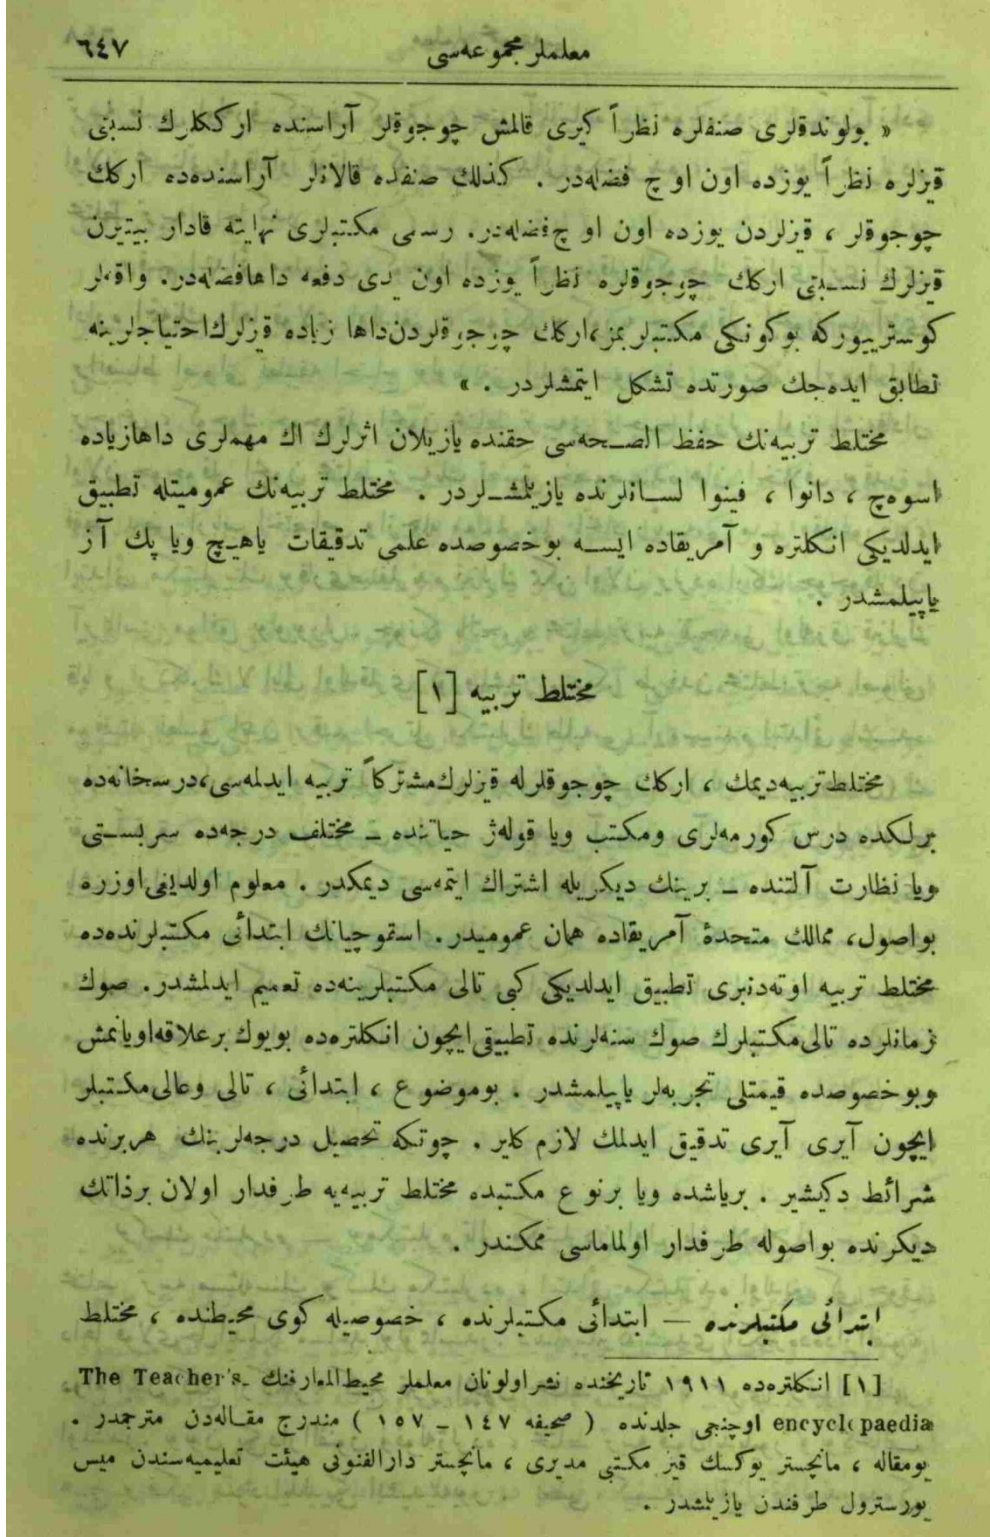 معلملر مجموعه‌سی
٦٤٧
« بولوندقلری صنفلره نظراً كیری قالمش چوجوقلر آراسنده ارككلرك نسبتی
قیزلره نظراً یوزده اون اوچ فضله‌در . كذلك صنفده قالانلر آراسنده‌ده اركك
چوجوقلر ، قیزلردن یوزده اون اوچ فضله‌در. رسمی مكتبلری نهایته قادار بیتیرن
قیزلرك نسبتی اركك چوجوقلره نظراً یوزده اون یدی دفعه داها فضله‌در. واقعه‌لر
كوستریپوركه بوكونكی مكتبلریمز، اركك چوجوقلردن داها زیاده قیزلرك احتیاجلرینه
تطابق ایده‌جك صورتده تشكل ایتمشلردر . »
مختلط تربیه‌نك حفظ الصحه‌سی حقنده یازیلان اثرلرك اك مهملری داها زیاده
اسوه‌چ ، دانوا ، فینوا لسانلرنده یازیلمشلردر . مختلط تربیه‌نك عمومیتله تطبیق
ایدلدیكی انكلتره و آمریقاده ایسه بوخصوصده علمی تدقیقات یا هیچ ویا پك آز
یاپیلمشدر .
مختلط تربیه [١]
مختلط تربیه دیمك ، اركك چوجوقلرله قیزلرك مشتركاً تربیه ایدلمه‌سی، درسخانه‌ده
برلكده درس كورمه‌لری ومكتب ویا قوله‌ژ حیاتنده ـ مختلف درجه‌ده سربستی
ویا نظارت آلتنده ـ برینك دیكریله اشتراك ایتمه‌سی دیمكدر . معلوم اولدیغی اوزره
بو اصول، ممالك متحدۀ آمریقاده همان عمومیدر. اسقوچیانك ابتدائی مكتبلرنده‌ده
مختلط تربیه اوته‌دنبری تطبیق ایدلدیكی كبی تالی مكتبلرینه‌ده تعمیم ایدلمشدر. صوك
زمانلرده تالی مكتبلرك صوك سنه‌لرنده تطبیقی ایچون انكلتره‌ده بویوك بر علاقه اویانمش
وبو خصوصده قیمتلی تجربه‌لر یاپیلمشدر . بو موضوع ، ابتدائی ، تالی وعالی مكتبلر
ایچون آیری آیری تدقیق ایدلمك لازم كلیر . چونكه تحصیل درجه‌لرینك هر برنده
شرائط دكیشیر . بریاشده ویا برنوع مكتبده مختلط تربیه‌یه طرفدار اولان برذاتك
دیكرنده بواصوله طرفدار اولماماسی ممكندر .
ابتدائی مكتبلرنده — ابتدائی مكتبلرنده ، خصوصیله كوی محیطنده ، مختلط
[١] انكلتره‌ده ١٩١١ تاریخنده نشر اولونان معلملر محیط المعارفنك The Teacher's
encyclopaedia اوچنجی جلدنده ( صحیفه ١٤٧ ـ ١٥٧ ) مندرج مقاله‌دن مترجمدر .
بومقاله ، مانچستر یوكسك قیز مكتبی مدیری ، مانچستر دارالفنونی هیئت تعلیمیه‌سندن میس
بورسترول طرفندن یازیلمشدر .